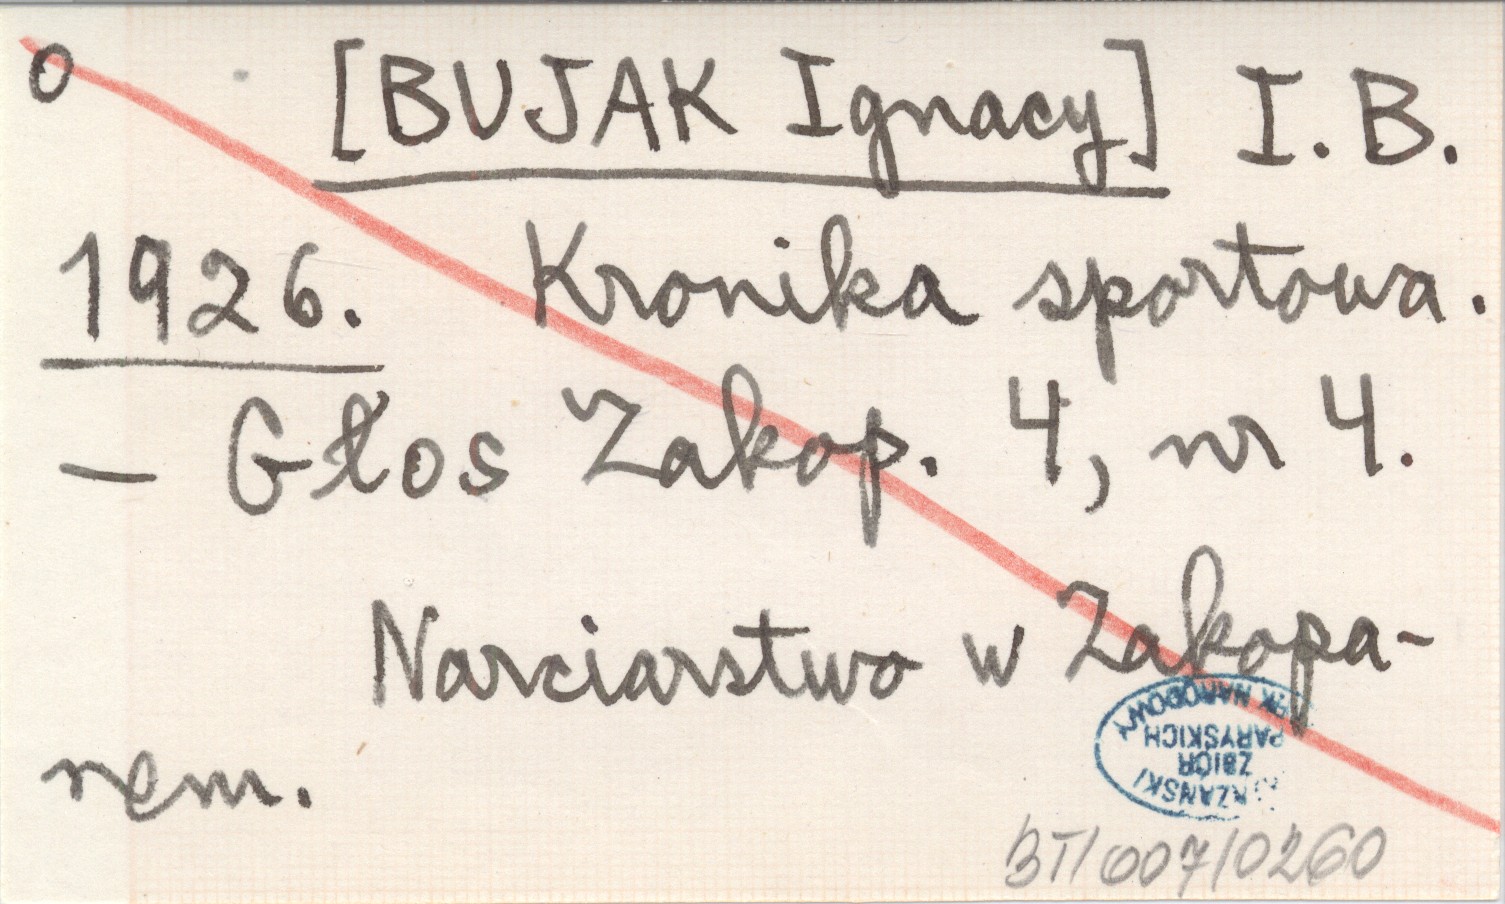 o [BUJAK Ignacy] I. B.
1926. Kronika sportowa.
— Głos Zakop. 4, nr 4.
Narciarstwo w Zakopa-
nem.
PARK NARODOWY
PARYSKICH
ZBIÓR
BT/007/0260